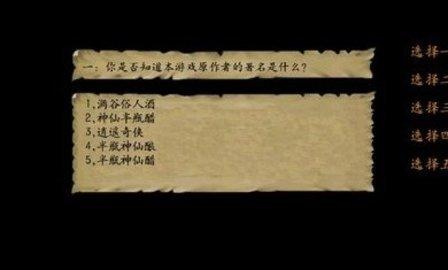 一：你是否知道本游戏原作者的署名是什么？
选择一
1，满谷俗人酒
选择二
2，神仙半瓶醋
选择三
3，逍遥奇侠
选择四
4，半瓶神仙酿
选择五
5，半瓶神仙醋